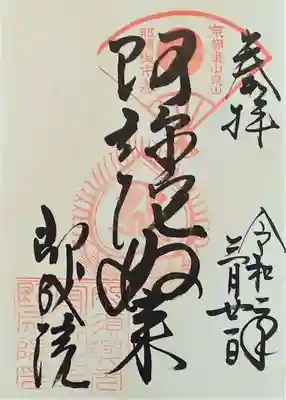 奉拝
令和二年
三月廿一日
阿弥陀如来
即成院
京都東山泉山